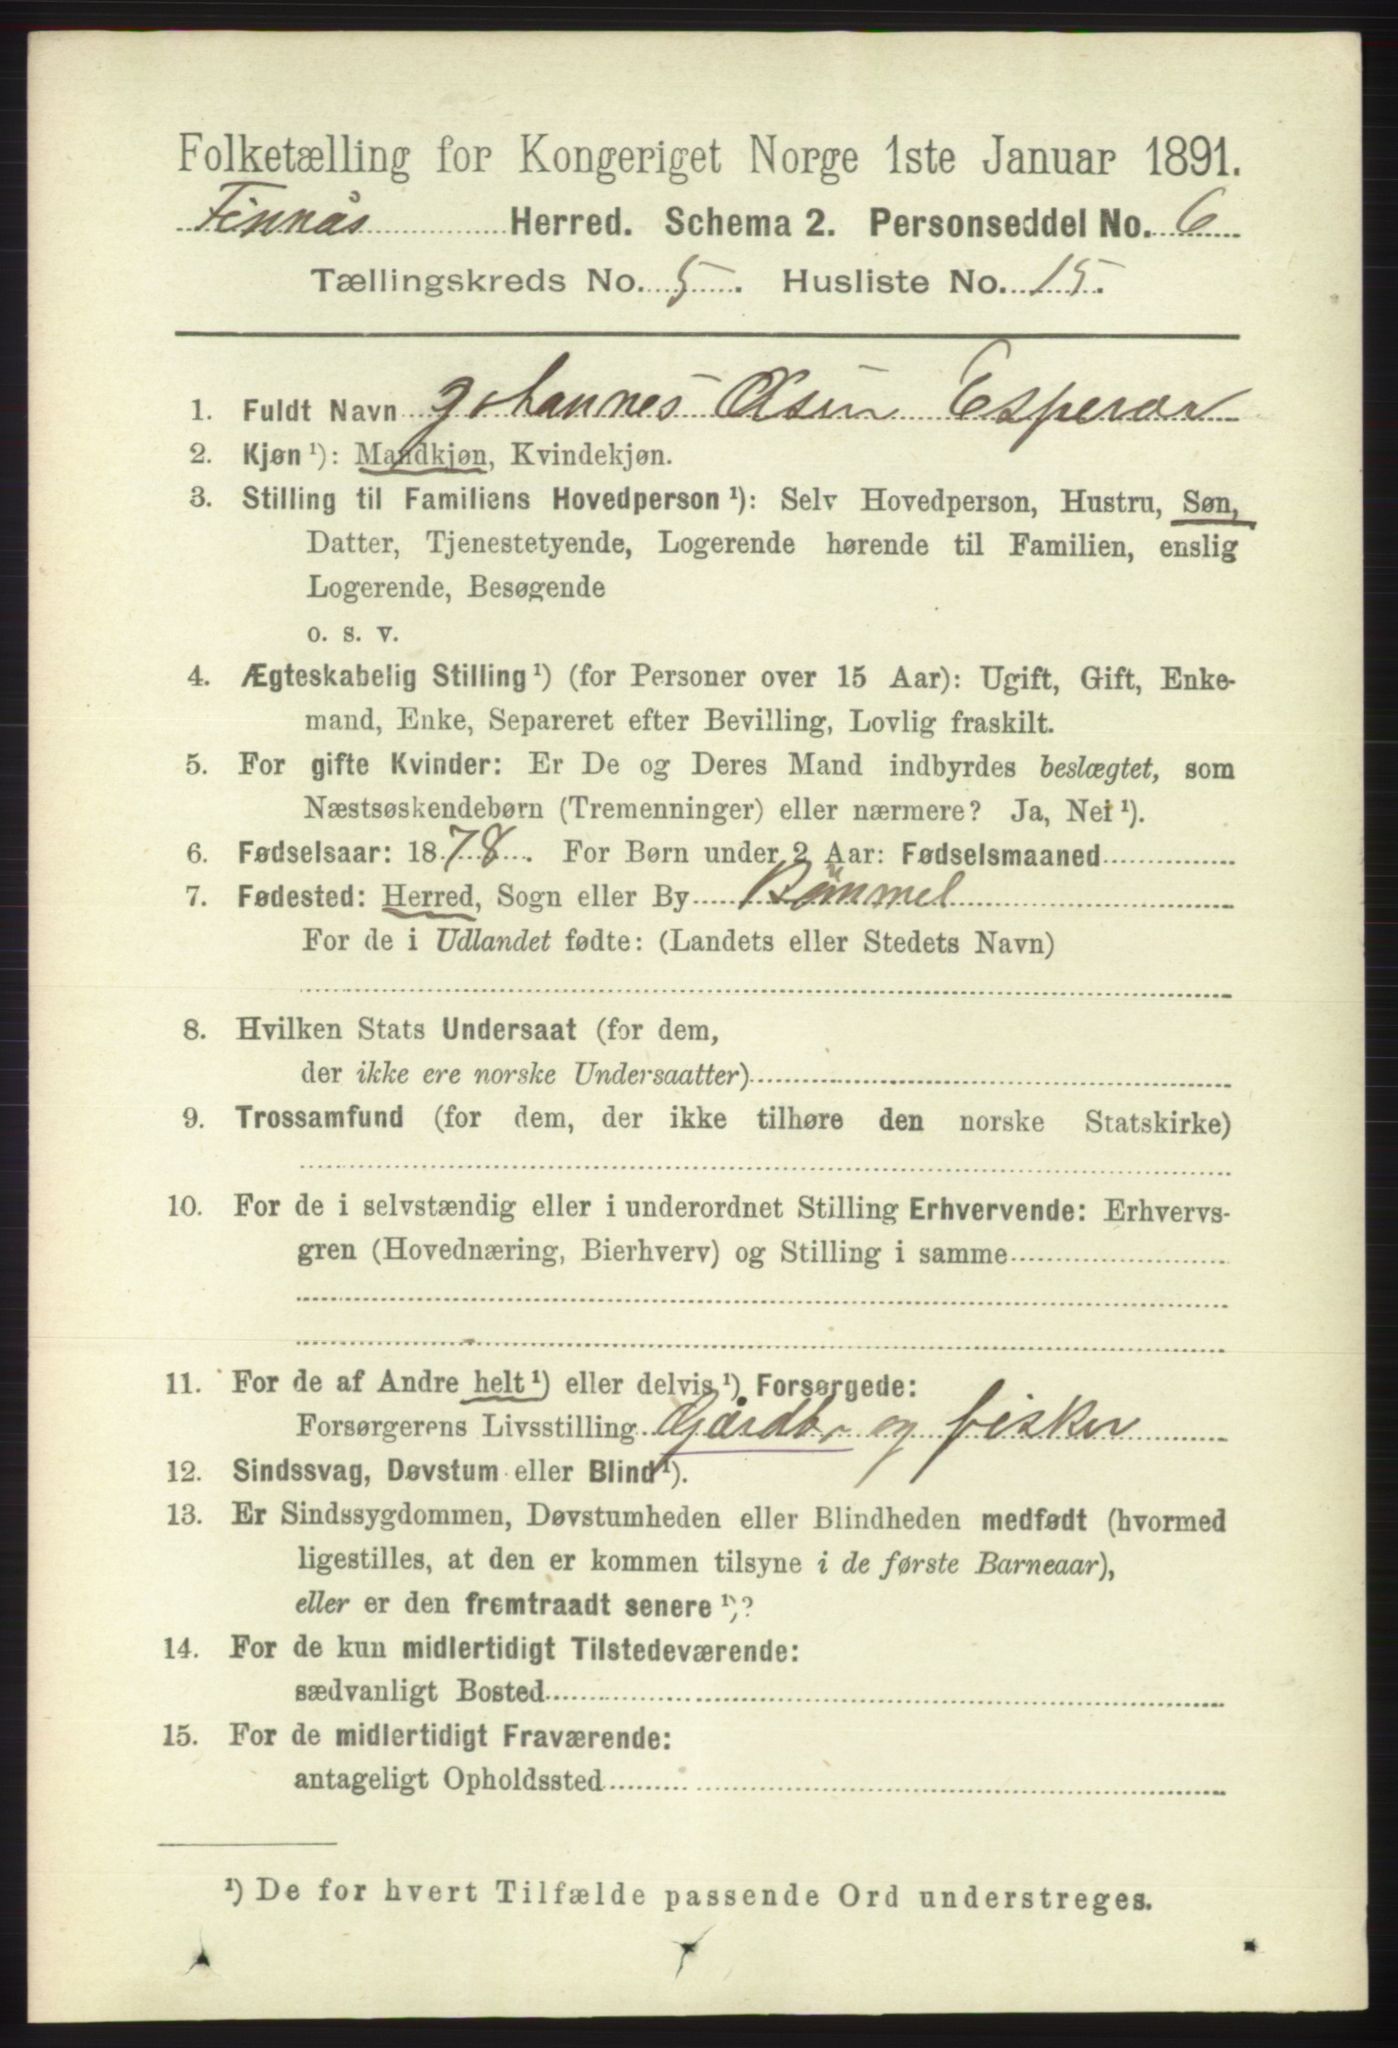 Folketælling for Kongeriget Norge 1ste Januar 1891.
Finnås Herred. Schema 2. Personseddel No. 6
Tællingskreds No. 5. Husliste No. 15.
1. Fuldt Navn Johannes Olsen Espevær
2. Kjøn ¹): Mandkjøn, Kvindekjøn.
3. Stilling til Familiens Hovedperson ¹): Selv Hovedperson, Hustru, Søn,
Datter, Tjenestetyende, Logerende hørende til Familien, enslig
Logerende, Besøgende
o. s. v.
4. Ægteskabelig Stilling ¹) (for Personer over 15 Aar): Ugift, Gift, Enke-
mand, Enke, Separeret efter Bevilling, Lovlig fraskilt.
5. For gifte Kvinder: Er De og Deres Mand indbyrdes beslægtet, som
Næstsøskendebørn (Tremenninger) eller nærmere? Ja, Nei ¹).
6. Fødselsaar: 1878. For Børn under 2 Aar: Fødselsmaaned
7. Fødested: Herred, Sogn eller By Bømmel
For de i Udlandet fødte: (Landets eller Stedets Navn)
8. Hvilken Stats Undersaat (for dem,
der ikke ere norske Undersaatter)
9. Trossamfund (for dem, der ikke tilhøre den norske Statskirke)
10. For de i selvstændig eller i underordnet Stilling Erhvervende: Erhvervs-
gren (Hovednæring, Bierhverv) og Stilling i samme
11. For de af Andre helt ¹) eller delvis ¹) Forsørgede:
Forsørgerens Livsstilling Gårdbr og fisker
12. Sindssvag, Døvstum eller Blind ¹).
13. Er Sindssygdommen, Døvstumheden eller Blindheden medfødt (hvormed
ligestilles, at den er kommen tilsyne i de første Barneaar),
eller er den fremtraadt senere ¹)?
14. For de kun midlertidigt Tilstedeværende:
sædvanligt Bosted
15. For de midlertidigt Fraværende:
antageligt Opholdssted
¹) De for hvert Tilfælde passende Ord understreges.